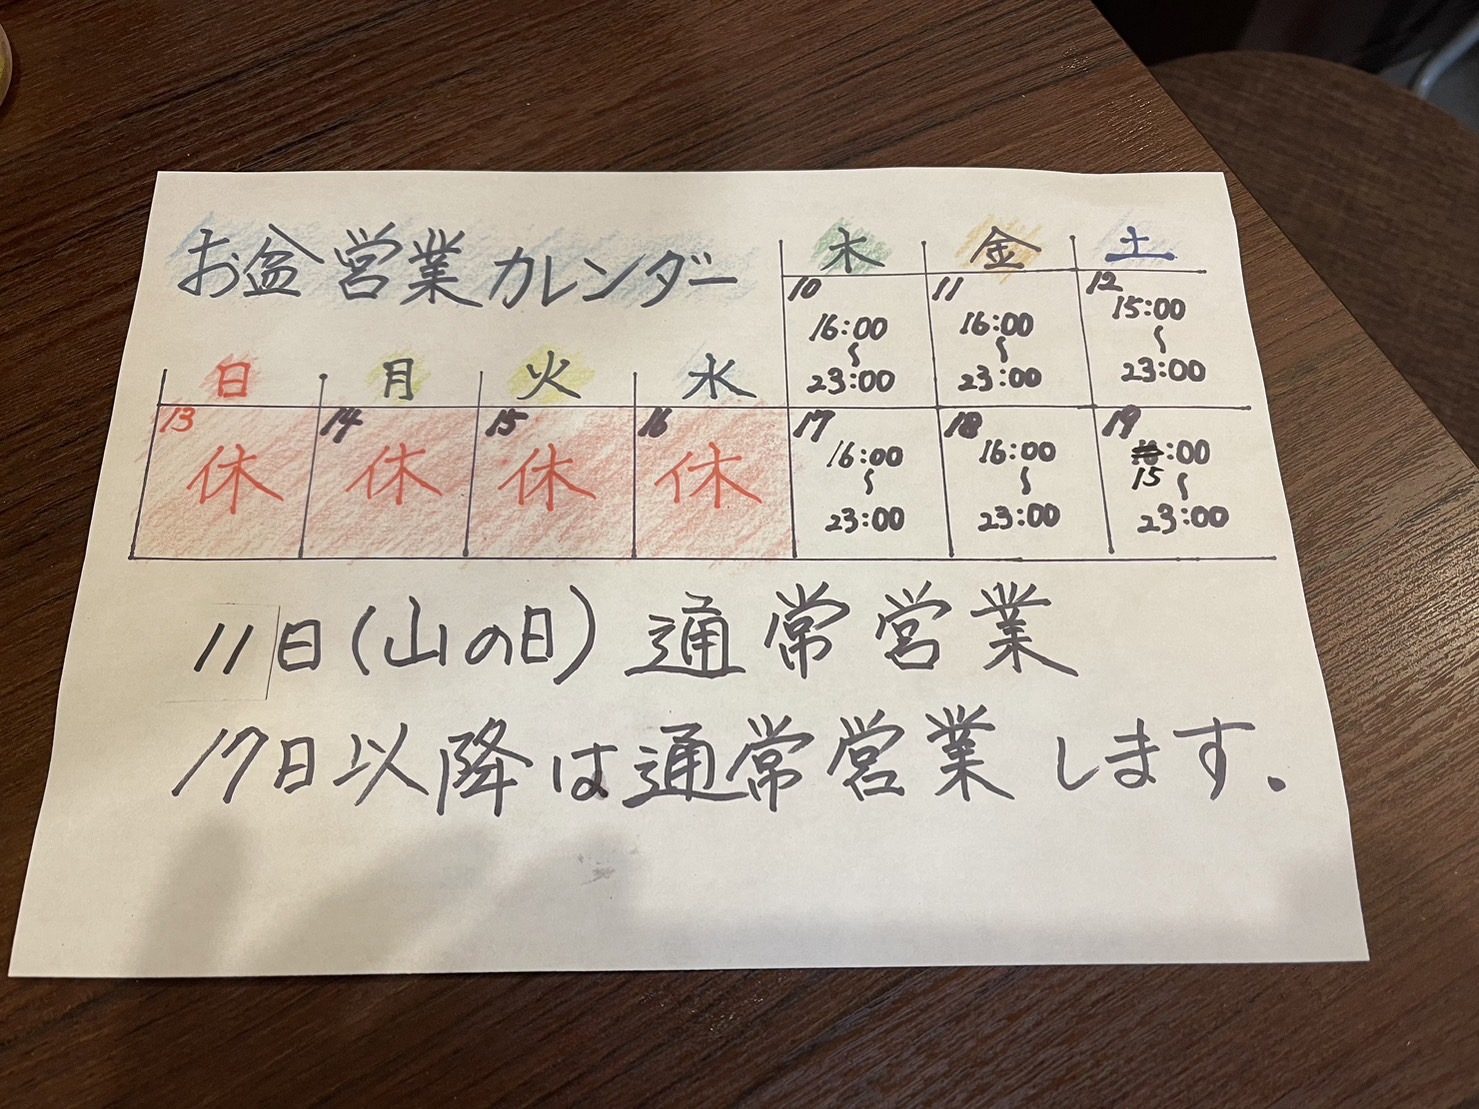 お盆営業カレンダー
木 金 土
10 11 12
16:00 16:00 15:00
〜 〜 〜
23:00 23:00 23:00
日 月 火 水
13 14 15 16 17 18 19
休 休 休 休 16:00 16:00 :00
15
〜 〜 〜
23:00 23:00 23:00
11日(山の日)通常営業
17日以降は通常営業します.